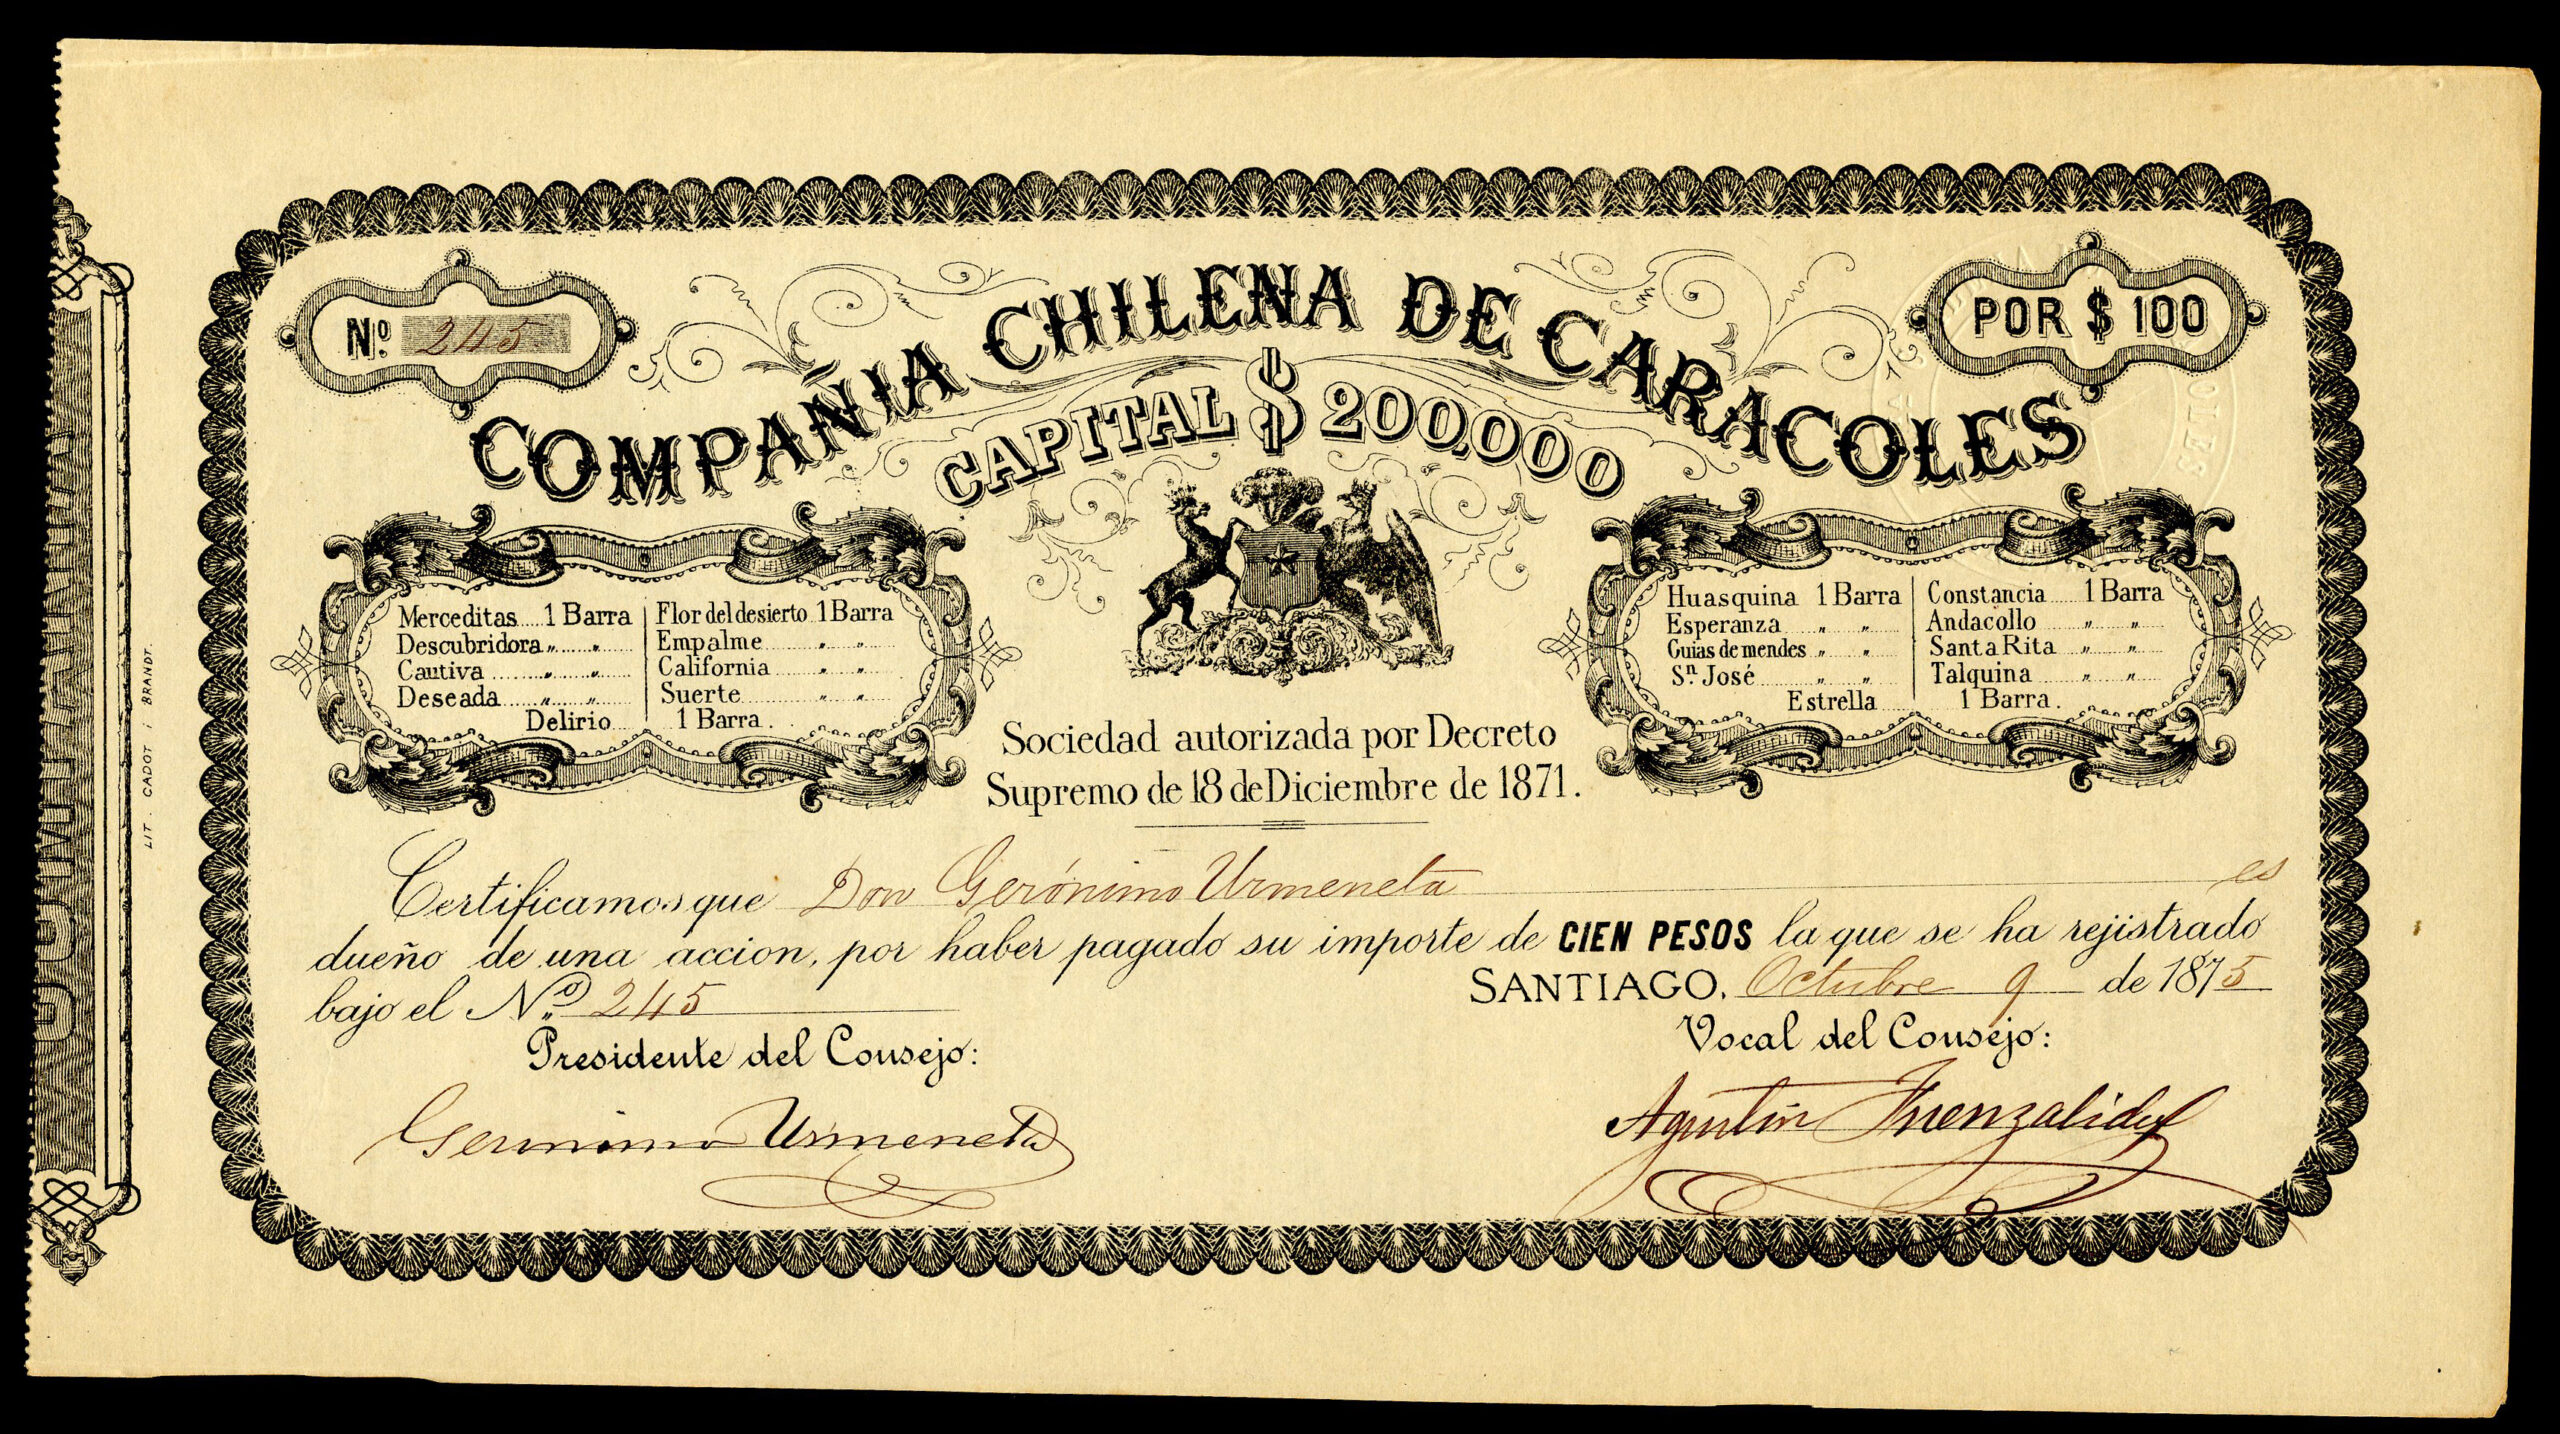 Nº 245
POR $ 100
COMPAÑIA CHILENA DE CARACOLES
CAPITAL $ 200.000
Merceditas 1 Barra
Descubridora „ „
Cautiva „ „
Deseada „ „
Flor del desierto 1 Barra
Empalme „ „
California „ „
Suerte „ „
Delirio 1 Barra.
Huasquina 1 Barra
Esperanza „ „
Guias de mendes „ „
Sn. José „ „
Constancia 1 Barra
Andacollo „ „
Santa Rita „ „
Talquina „ „
Estrella 1 Barra.
Sociedad autorizada por Decreto
Supremo de 18 de Diciembre de 1871.
Certificamos que Don Gerónimo Urmeneta es
dueño de una accion, por haber pagado su importe de CIEN PESOS la que se ha rejistrado
bajo el Nº 245 SANTIAGO, Octubre 9 de 1875
Presidente del Consejo:
Vocal del Consejo:
Geronimo Urmeneta
Agustin Fuenzalida
LIT. CADOT i BRANDT.